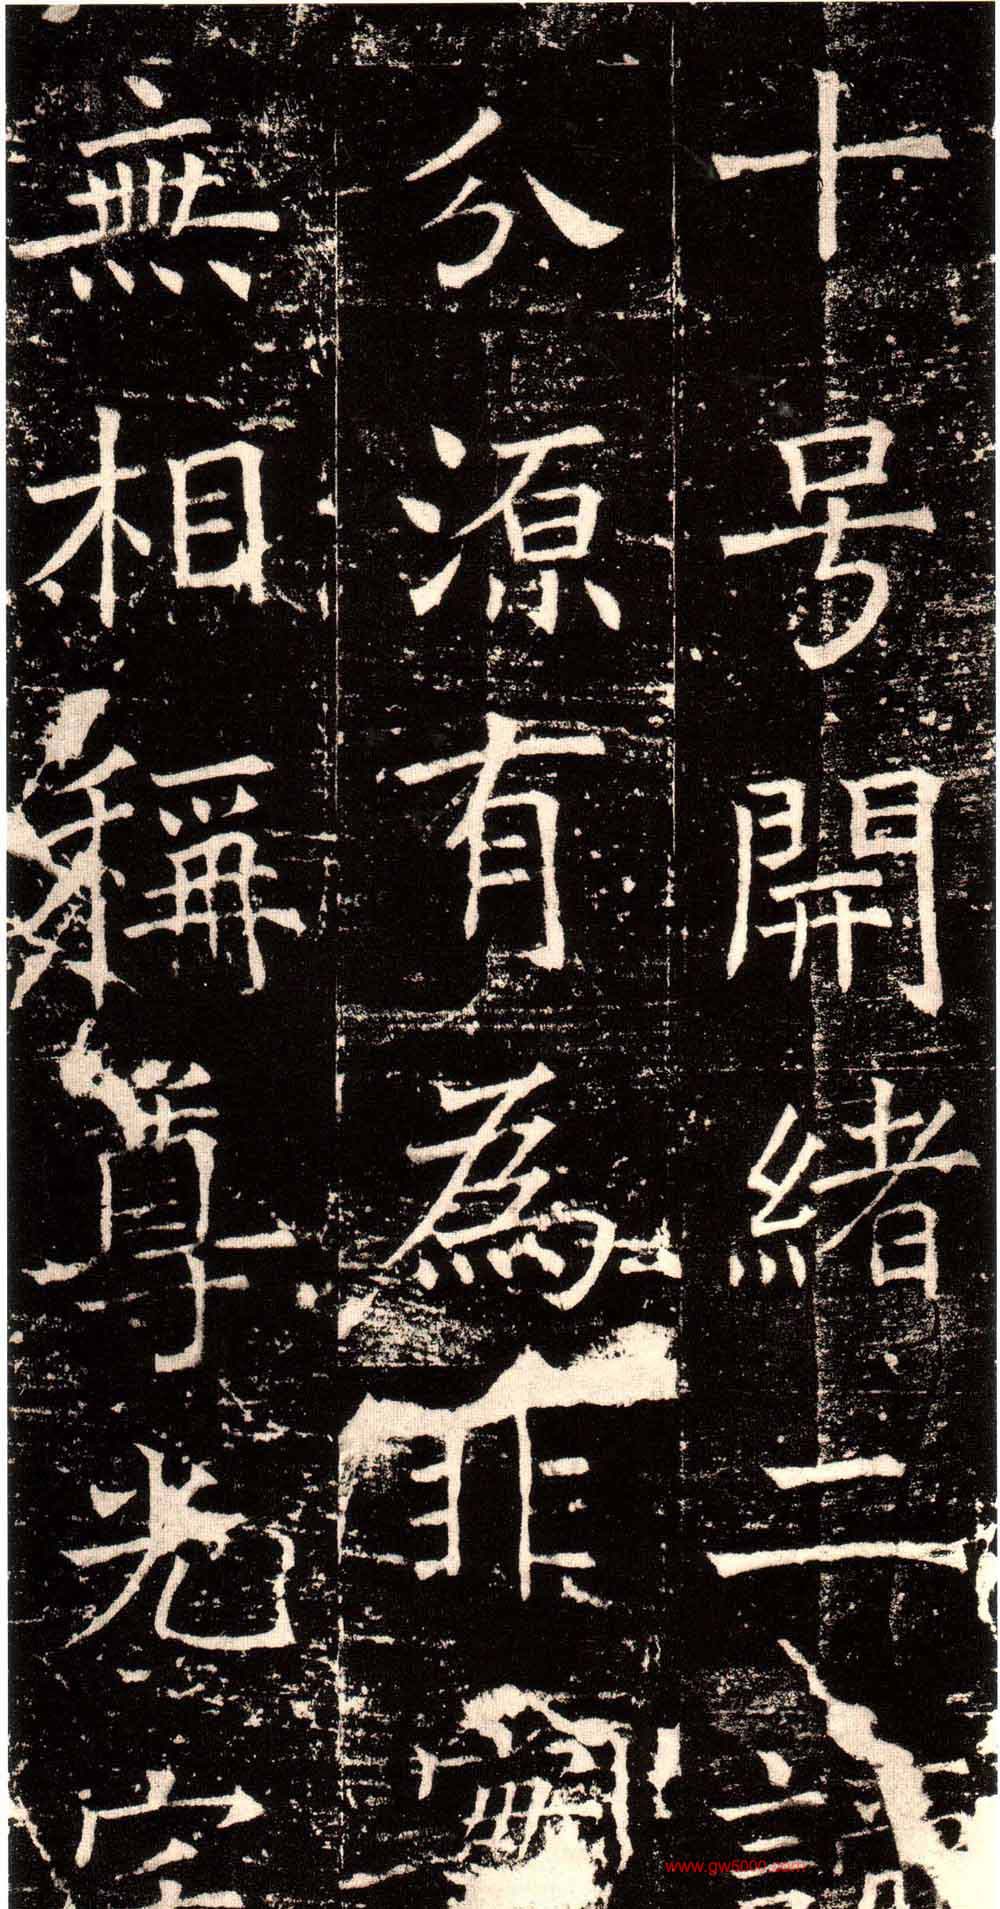 十号開緒二
分源有為非
無相稱尊光
www.gw5000.com